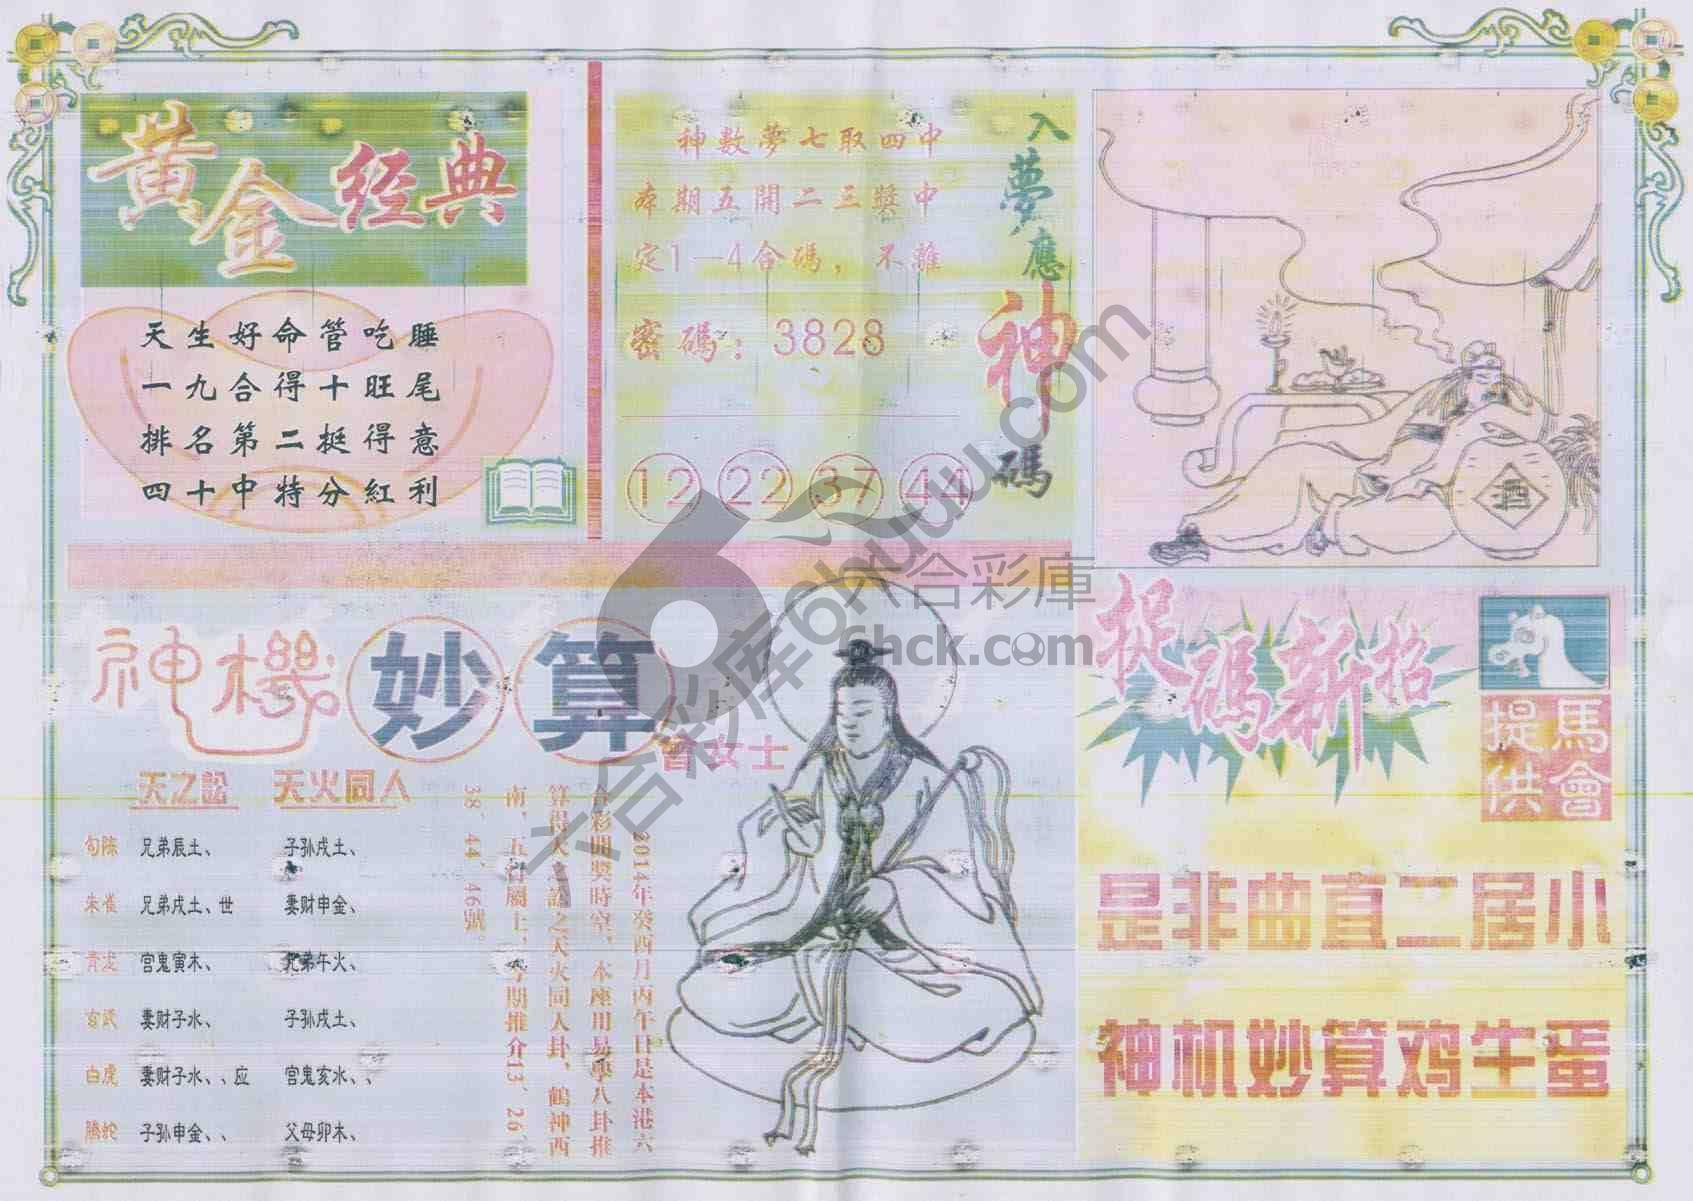 黄金经典
天生好命管吃睡
一九合得十旺尾
排名第二挺得意
四十中特分紅利
神數夢七取四中
本期五開二三獎中
定1—4合碼，不難
密碼：3828
12 22 37 44
入夢應神碼
酒
神機妙算
曾女士
天之訟 天火同人
勾陈 兄弟辰土、 子孙戌土、
朱雀 兄弟戌土、世 妻财申金、
青龙 宫鬼寅木、 兄弟午火、
玄武 妻财子水、 子孙戌土、
白虎 妻财子水、、应 宫鬼亥水、、
腾蛇 子孙申金、、 父母卯木、
2014年癸酉月丙午日是本港六
合彩開獎時空，本座用易學八卦推
算得天之訟之天火同人卦，鶴神西
南，五行屬土，今期推介13、26、
38、44、46號。
捉碼新招
馬會提供
是非曲直二居小
神机妙算鸡生蛋
六合彩库 6huuu.com
六合彩庫
6hck.com